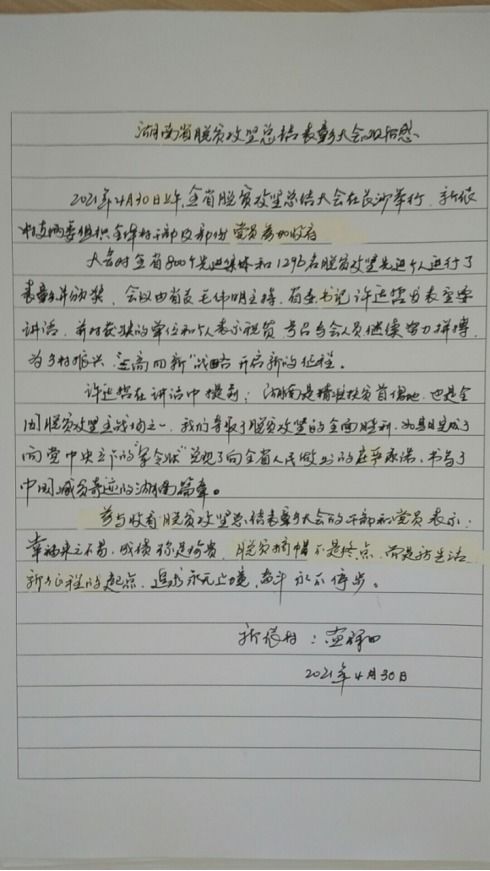 湖南省脱贫攻坚总结表彰大会观后感
2021年4月30日上午,全省脱贫攻坚总结大会在长沙举行,新依
村支两委组织全体村干部及部份党员参加收看
大会对全省800个先进集体和1296名脱贫攻坚先进个人进行了
表彰并颁奖,会议由省长毛伟明主持,省委书记许达哲发表重要
讲话,并对获奖的单位和个人表示祝贺,号召与会人员继续努力拼搏,
为乡村振兴,"三高四新"战略开启新的征程。
许达哲在讲话中提到:湖南是精准扶贫首倡地,也是全
国脱贫攻坚主战场之一,我们夺取了脱贫攻坚的全面胜利,如期完成了
向党中央立下的"军令状"兑现了向全省人民做出的庄严承诺,书写了
中国减贫奇迹的湖南篇章。
参与收看脱贫攻坚总结表彰大会的干部和党员表示:
幸福来之不易,成绩弥足珍贵,脱贫摘帽不是终点,而是新生活、
新征程的起点,追求永无止境,奋斗永不停步。
新依村:
2021年4月30日